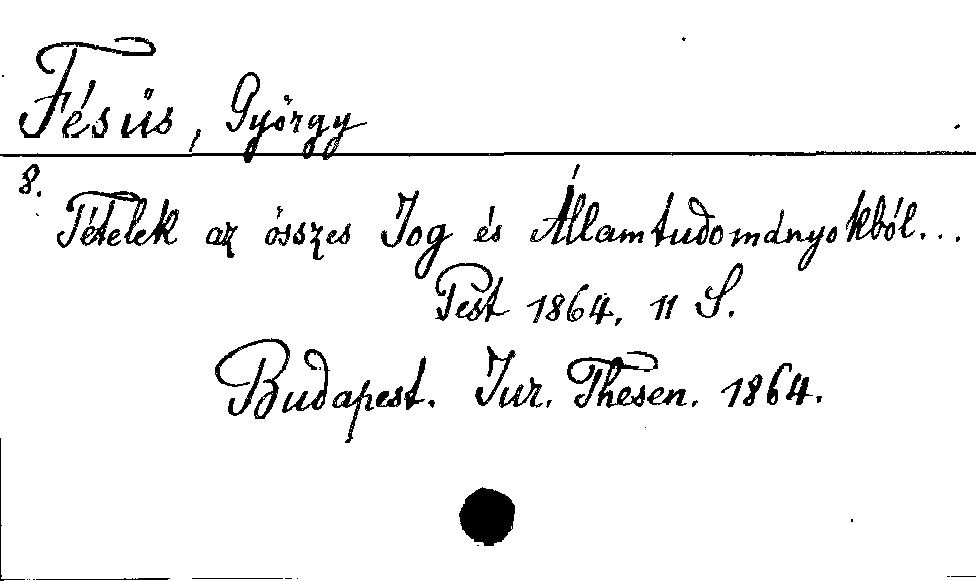 Fésüs, György
8.
Tételek az összes Jog és Államtudományokból...
Pest 1864, 11 S.
Budapest. Jur. Thesen. 1864.